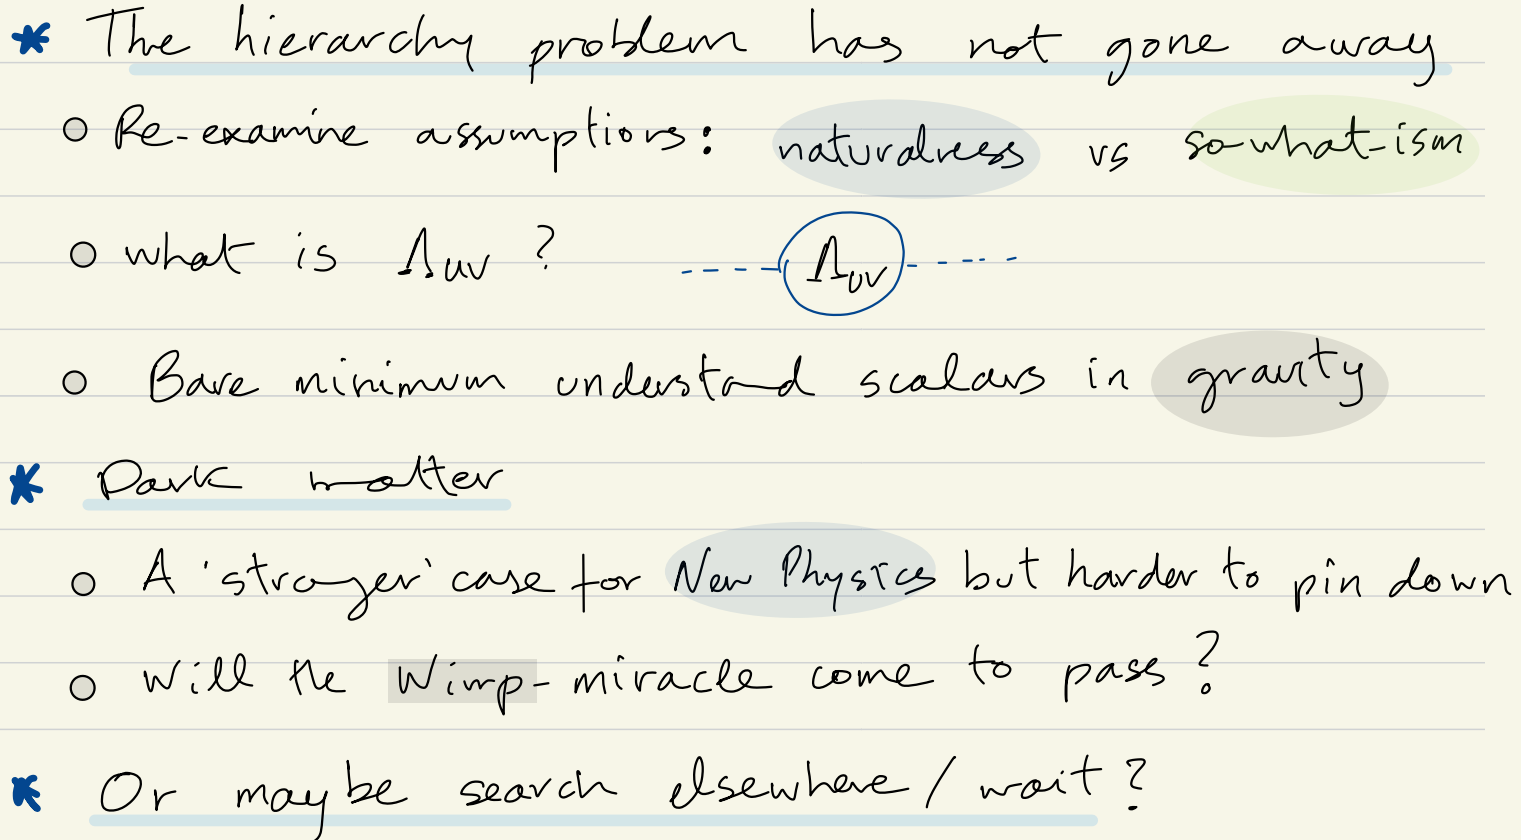 * The hierarchy problem has not gone away
○ Re-examine assumptions: naturalness vs so-what-ism
○ what is Λuv ? Λuv
○ Bare minimum understand scalars in gravity
* Dark matter
○ A 'stronger' case for New Physics but harder to pin down
○ Will the Wimp-miracle come to pass?
* Or maybe search elsewhere / wait?